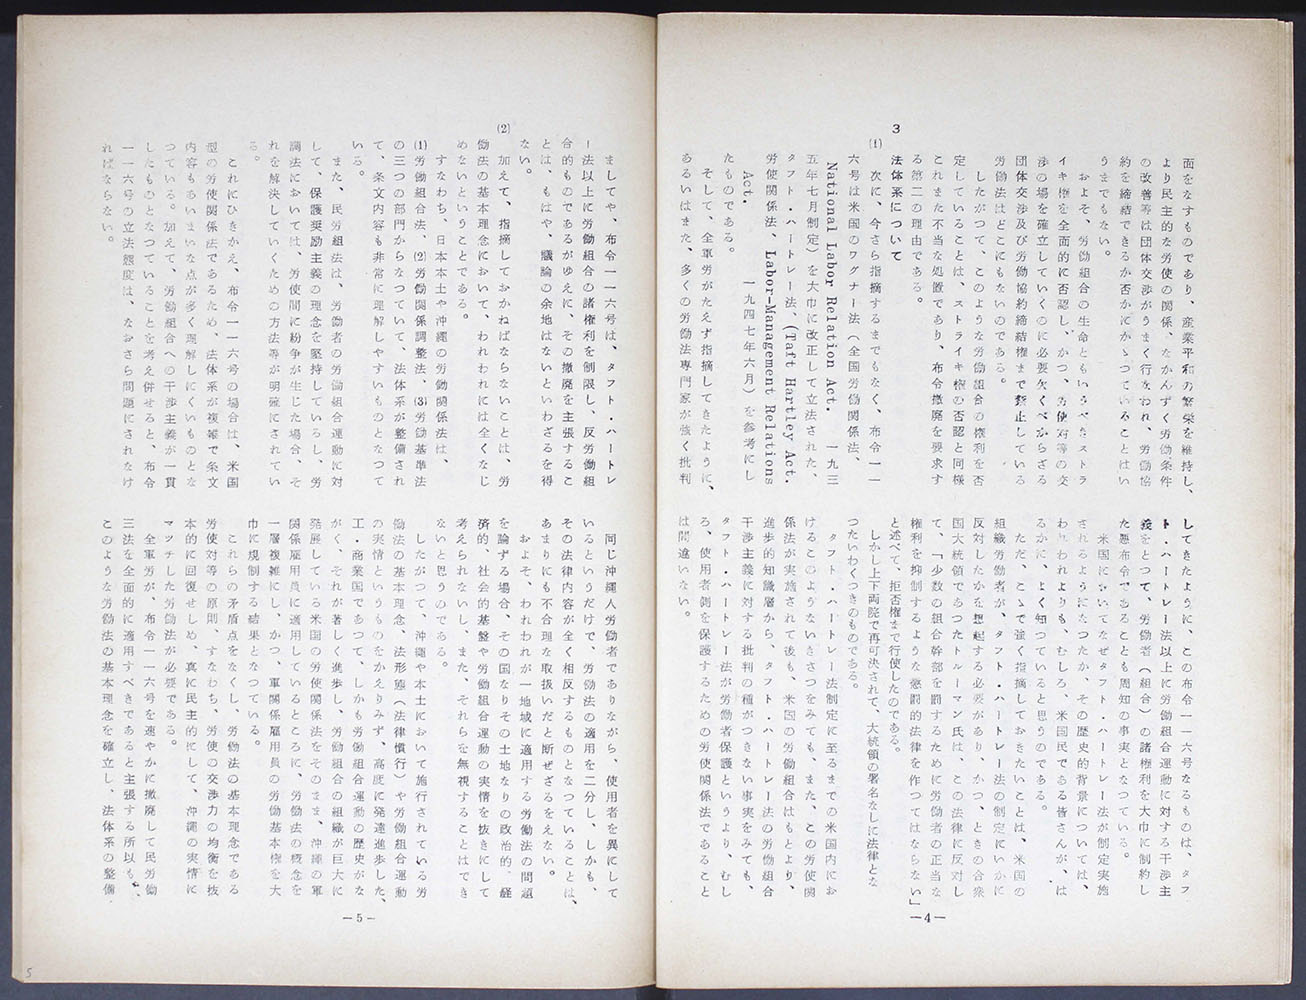 面をなすものであり、産業平和の繁栄を維持し、
より民主的な労使の関係、なかんずく労働条件
の改善等は団体交渉がうまく行なわれ、労働協
約を締結できるか否かにかゝつていることはい
うまでもない。
およそ、労働組合の生命ともいうべきストラ
イキ権を全面的に否認し、かつ、労使対等の交
渉の場を確立していくのに必要欠くべからざる
団体交渉及び労働協約締結権まで禁止している
労働法はどこにもないのである。
したがつて、このような労働組合の権利を否
定していることは、ストライキ権の否認と同様
これまた不当な処置であり、布令撤廃を要求す
る第二の理由である。
3 法体系について
(1) 次に、今さら指摘するまでもなく、布令一一
六号は米国のワグナー法(全国労働関係法、
National Labor Relation Act. 一九三
五年七月制定)を大巾に改正して立法された、
タフト・ハートレー法、(Taft Hartley Act.
労使関係法、Labor-Management Relations
Act. 一九四七年六月)を参考にし
たものである。
そして、全軍労がたえず指摘してきたように、
あるいはまた、多くの労働法専門家が強く批判
してきたように、この布令一一六号なるものは、タフ
ト・ハートレー法以上に労働組合運動に対する干渉主
義をとつて、労働者(組合)の諸権利を大巾に制約し
た悪布令であることも周知の事実となつている。
米国においてなぜタフト・ハートレー法が制定実施
されるようになつたか、その歴史的背景については、
われわれよりも、むしろ、米国民である皆さんが、は
るかに、よく知つていると思うのである。
ただ、こゝで強く指摘しておきたいことは、米国の
組織労働者が、タフト・ハートレー法の制定にいかに
反対したかを想起する必要があり、かつ、ときの合衆
国大統領であつたトルーマン氏は、この法律に反対し
て、「少数の組合幹部を罰するために労働者の正当な
権利を抑制するような懲罰的法律を作つてはならない」
と述べて、拒否権まで行使したのである。
しかし上下両院で再可決されて、大統領の署名なしに法律とな
つたいわくつきのものである。
タフト・ハートレー法制定に至るまでの米国内にお
けるこのようないきさつをみても、また、この労使関
係法が実施されて後も、米国の労働組合はもとより、
進歩的知識層から、タフト・ハートレー法の労働組合
干渉主義に対する批判の種がつきない事実をみても、
タフト・ハートレー法が労働者保護というより、むし
ろ、使用者側を保護するための労使関係法であること
は間違いない。
—4—
ましてや、布令一一六号は、タフト・ハートレ
ー法以上に労働組合の諸権利を制限し、反労働組
合的ものであるがゆえに、その撤廃を主張するこ
とは、もはや、議論の余地はないといわざるを得
ない。
(2) 加えて、指摘しておかねばならないことは、労
働法の基本理念において、われわれには全くなじ
めないということである。
すなわち、日本本土や沖縄の労働関係法は、
(1)労働組合法、(2)労働関係調整法、(3)労働基準法
の三つの部門からなつていて、法体系が整備され
て、条文内容も非常に理解しやすいものとなつて
いる。
また、民労組法は、労働者の労働組合運動に対
して、保護奨励主義の理念を堅持しているし、労
調法においては、労使間に紛争が生じた場合、そ
れを解決していくための方法等が明確にされてい
る。
これにひきかえ、布令一一六号の場合は、米国
型の労使関係法であるため、法体系が複雑で条文
内容もあいまいな点が多く理解しにくいものとな
つている。加えて、労働組合への干渉主義が一貫
したものとなつていることを考え併せると、布令
一一六号の立法態度は、なおさら問題にされなけ
ればならない。
同じ沖縄人労働者でありながら、使用者を異にして
いるというだけで、労働法の適用を二分し、しかも、
その法律内容が全く相反するものとなつていることは、
あまりにも不合理な取扱いだと断ぜざるをえない。
およそ、われわれが一地域に適用する労働法の問題
を論ずる場合、その国なりその土地なりの政治的、経
済的、社会的基盤や労働組合運動の実情を抜きにして
考えられないし、また、それらを無視することはでき
ないと思うのである。
したがつて、沖縄や本土において施行されている労
働法の基本理念、法形態(法律慣行)や労働組合運動
の実情というものをかえりみず、高度に発達進歩した、
工・商業国であつて、しかも労働組合運動の歴史がな
がく、それが著しく進歩し、労働組合の組織が巨大に
発展している米国の労使関係法をそのまま、沖縄の軍
関係雇用員に適用しているところに、労働法の概念を
一層複雑にし、かつ、軍関係雇用員の労働基本権を大
巾に規制する結果となつている。
これらの矛盾点をなくし、労働法の基本理念である
労使対等の原則、すなわち、労使の交渉力の均衡を抜
本的に回復せしめ、真に民主的にして、沖縄の実情に
マッチした労働法が必要である。
全軍労が、布令一一六号を速やかに撤廃して民労働
三法を全面的に適用すべきであると主張する所以も、
このような労働法の基本理念を確立し、法体系の整備
—5—
5